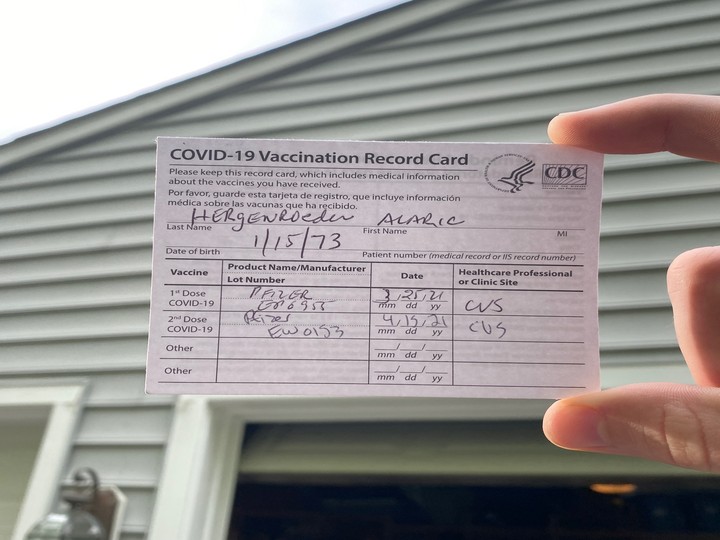 COVID-19 Vaccination Record Card
CDC
Please keep this record card, which includes medical information
about the vaccines you have received.
Por favor, guarde esta tarjeta de registro, que incluye información
médica sobre las vacunas que ha recibido.
HERgENROeder ALARIC
Last Name First Name MI
1/15/73
Date of birth Patient number (medical record or IIS record number)
Vaccine Product Name/Manufacturer Date Healthcare Professional
Lot Number or Clinic Site
1st Dose PFIZER 3/25/21 CVS
COVID-19 mm dd yy
2nd Dose Pfizer CVS
COVID-19 EW0153 mm dd yy
Other / /
mm dd yy
Other / /
mm dd yy